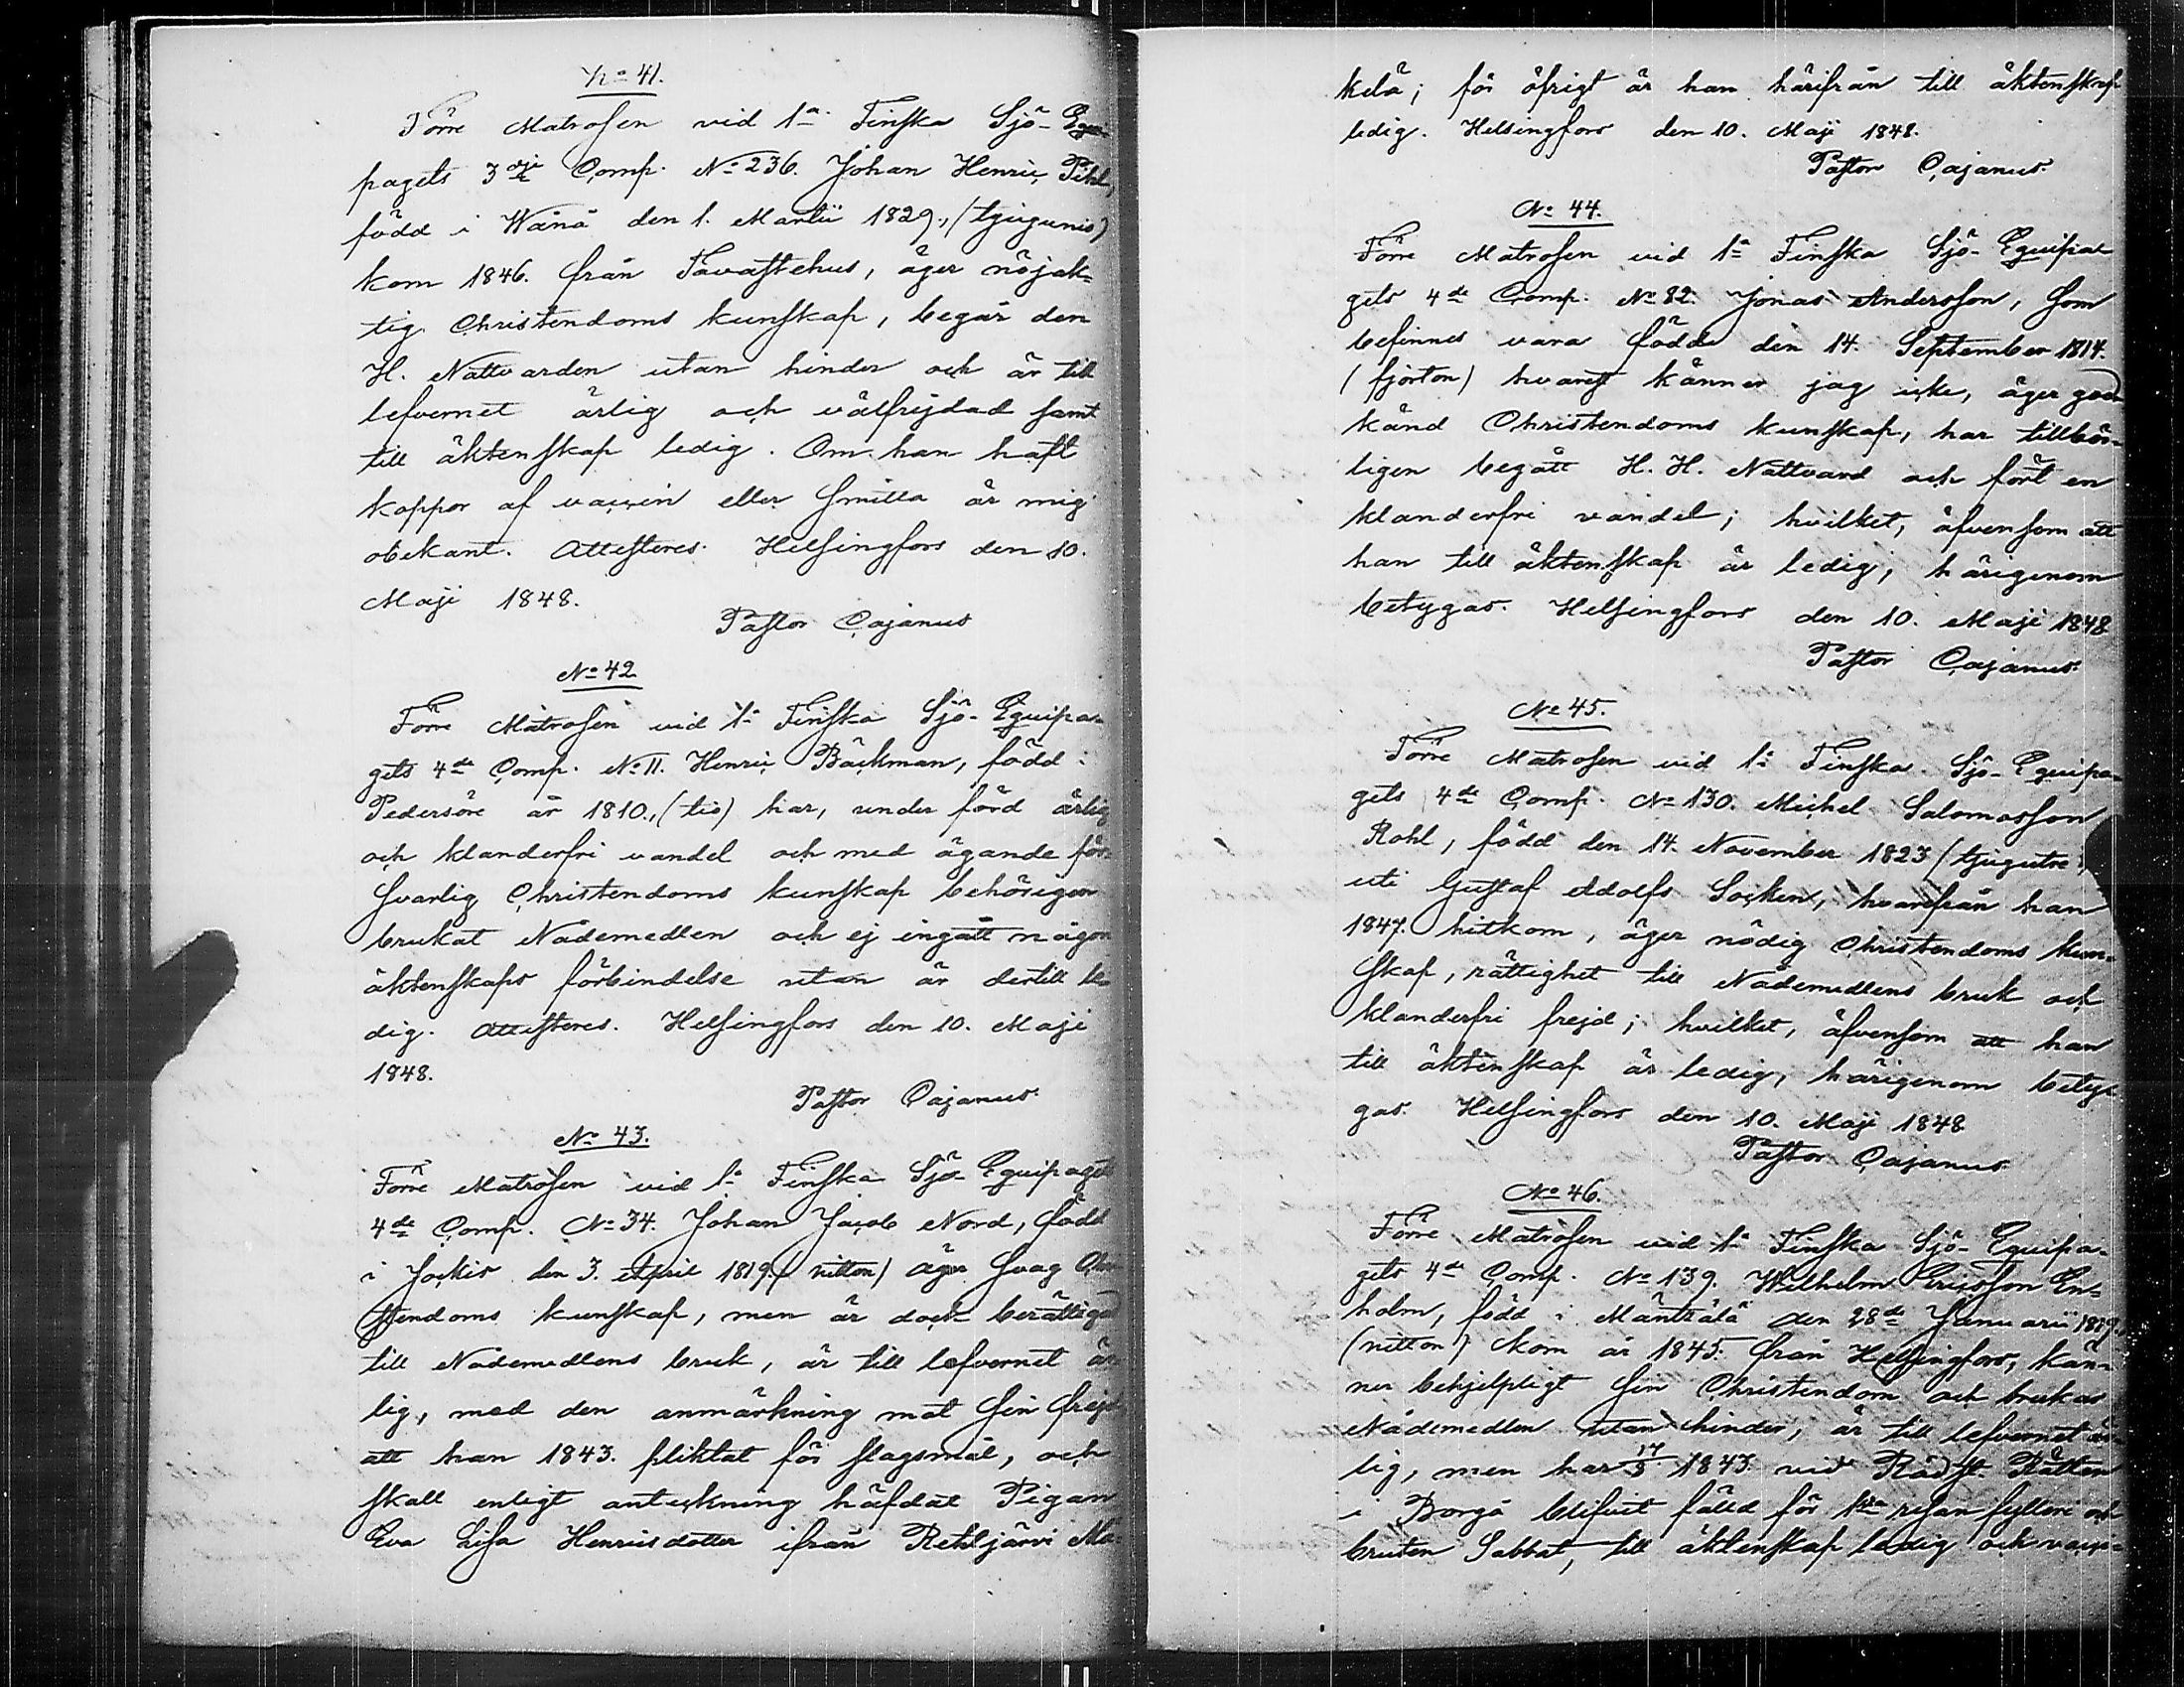 No 41.
Förre Matrosen vid 1a Finska Sjö-Equi-
pagets 3dje Comp. No 236. Johan Henric Pihl,
född i Wånå den 1. Martii 1829., (tjugunio)
kom 1846. från Tavastehus, äger nöjak-
tig Christendoms kunskap, begår den
H. Nattvarden utan hinder och är till
lefvernet ärlig och välfrejdad samt
till äktenskap ledig. Om han haft
koppor af vaccin eller smitta är mig
obekant. Attesteres. Helsingfors den 10.
Maji 1848.
Pastor Cajanus
No 42
Förre Matrosen vid 1a Finska Sjö-Equipa-
gets 4de Comp. No 11. Henric Bäckman, född i
Pedersöre år 1810., (tio) har, under förd ärlig
och klanderfri vandel och med ägande för-
svarlig Christendoms kunskap behörigen
brukat Nådemedlen och ej ingått någon
äktenskaps förbindelse utan är dertill le-
dig. Attesteres. Helsingfors den 10. Maji
1848.
Pastor Cajanus
No 43.
Förre Matrosen vid 1a Finska Sjö-Equipagets
4de Comp. No 34. Johan Jacob Nord, född
i Jockis den 3. April 1819. (nitton) äger svag Chri-
stendoms kunskap, men är dock berättigad
till Nådemedlens bruk, är till lefvernet är-
lig, med den anmärkning mot sin frejd
att han 1843. pliktat för slagsmål, och
skall enligt anteckning häfdat Pigan
Eva Lisa Henricsdotter ifrån Rehtjärvi Mä-
kelä; för öfrigt är han härifrån till äktenskap
ledig. Helsingfors den 10. Maji 1848.
Pastor Cajanus.
No 44.
Förre Matrosen vid 1a Finska Sjö-Equipa-
gets 4de Comp. No 82. Jonas Andersson, som
befinnes vara född den 14. September 1814.
(fjorton) hvarest känner jag icke, äger god-
känd Christendoms kunskap, har tillbör-
ligen begått H. H. Nattvard och fört en
klanderfri vandel; hvilket, äfvensom att
han till äktenskap är ledig, härigenom
betygas. Helsingfors den 10. Maji 1848
Pastor Cajanus.
No 45.
Förre Matrosen vid 1a Finska Sjö-Equipa-
gets 4de Comp. No 130. Michel Salomosson
Rohl, född den 14. November 1823 (tjugutre)
uti Gustaf Adolfs Socken, hvarifrån han
1847. hitkom, äger nödig Christendoms kun-
skap, rättighet till Nådemedlens bruk och
klanderfri frejd; hvilket, äfvensom att han
till äktenskap är ledig, härigenom bety-
gas. Helsingfors den 10. Maji 1848
Pastor Cajanus
No 46.
Förre Matrosen vid 1a Finska Sjö-Equipa-
gets 4de Comp. No 139. Wilhelm Ericsson En-
holm, född i Mäntsälä den 28de Januarii 1819.
(nitton) kom år 1845. från Helsingfors, kän-
ner behjelpligt sin Christendom och brukar
Nådemedlen utan hinder, är till lefvernet är-
lig, men har 17/3 1843. vid Rådst. Rätten
i Borgå blifvit fälld för 1sta resan fylleri och
bruten Sabbat, till äktenskap ledig och vacci-